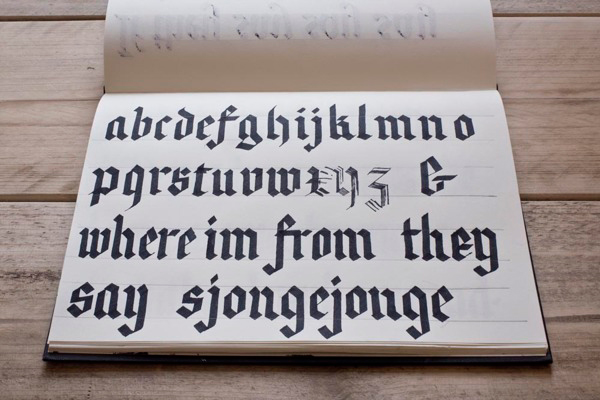 abcdefghijklmno
pqrstuvwxyz &
where im from they
say sjongejonge